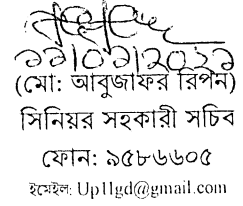 ২২/০১/২০২১
(মো: আবুজাফর রিপন)
সিনিয়র সহকারী সচিব
ফোন: ৯৫৮৬৬০৫
ইমেইল: Up1lgd@gmail.com